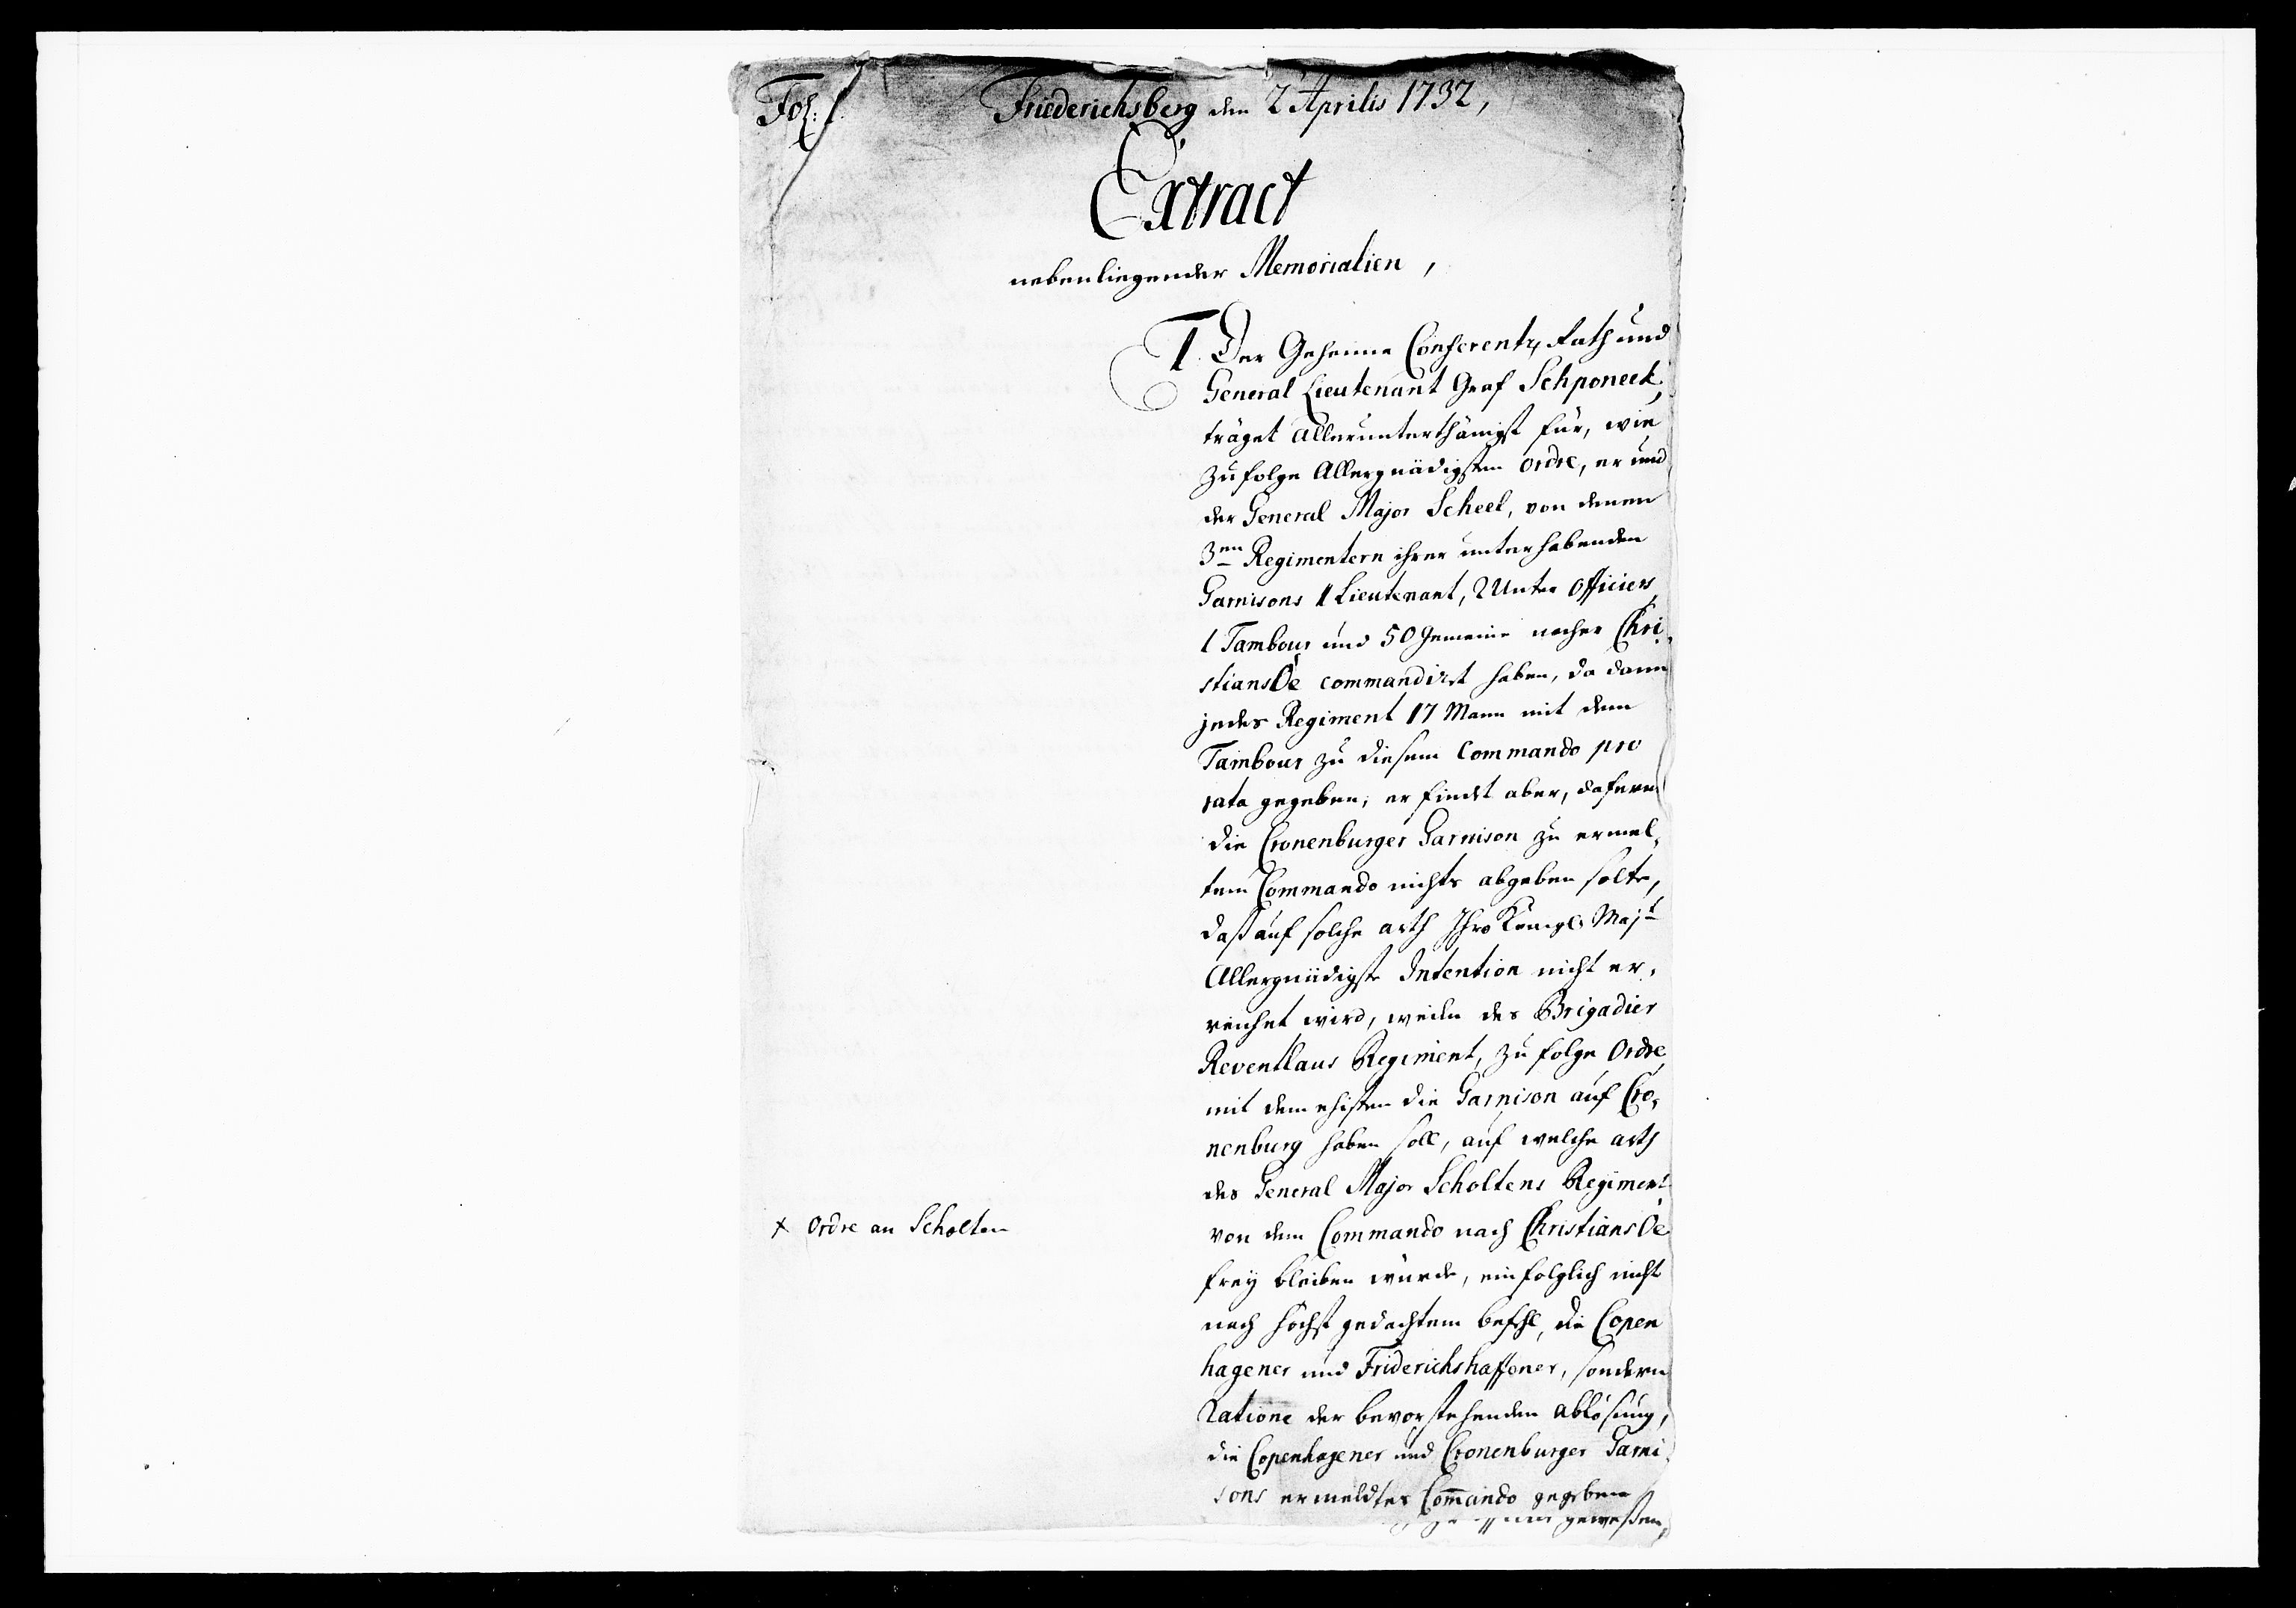 Fol: 1.
Friederichsberg den 2 Aprilis 1732,
Extract
nebenliegender Memorialien,
1. Der Geheime Conferentz Rath und
General Lieutenant Graf Schponeck,
träget Allerunterthänigst für, wie
zufolge Allergnädigsten Ordre, er und
der General Major Scheel, von denen
3en Regimentern ihrer unterhabenden
Garnisons 1 Lieutenant, 2 Unter Officiers,
1 Tambour und 50 Gemeine nacher Chri-
stiansÖe commandirt haben, da dann
jedes Regiment 17 Mann mit dem
Tambour zu diesem Commando pro
rata gegeben; er findt aber, dafern
die Cronenburger Garnison zu ermel-
tem Commando nichts abgeben solte,
daß auf solche arth Ihro Königl Majt
Allergnädigste Intention nicht er-
reichet wird, weiln des Brigadier
Reventlaus Regiment, zu folge Ordre,
mit dem ehisten die Garnison auf Cro-
nenburg haben soll, auf welche arth
des General Major Scholtens Regiment
x Ordre an Scholten
von dem Commando nach ChristiansÖe
frey bleiben würde, einfolglich nicht
nach höchst gedachtem befehl, die Copen
hagener und Friderichshaffener, sondern
Ratione der bevorstehenden ablösung,
die Copenhagener und Cronenburger Garni
sons ermeldtes Commando gegeben
gewesen,